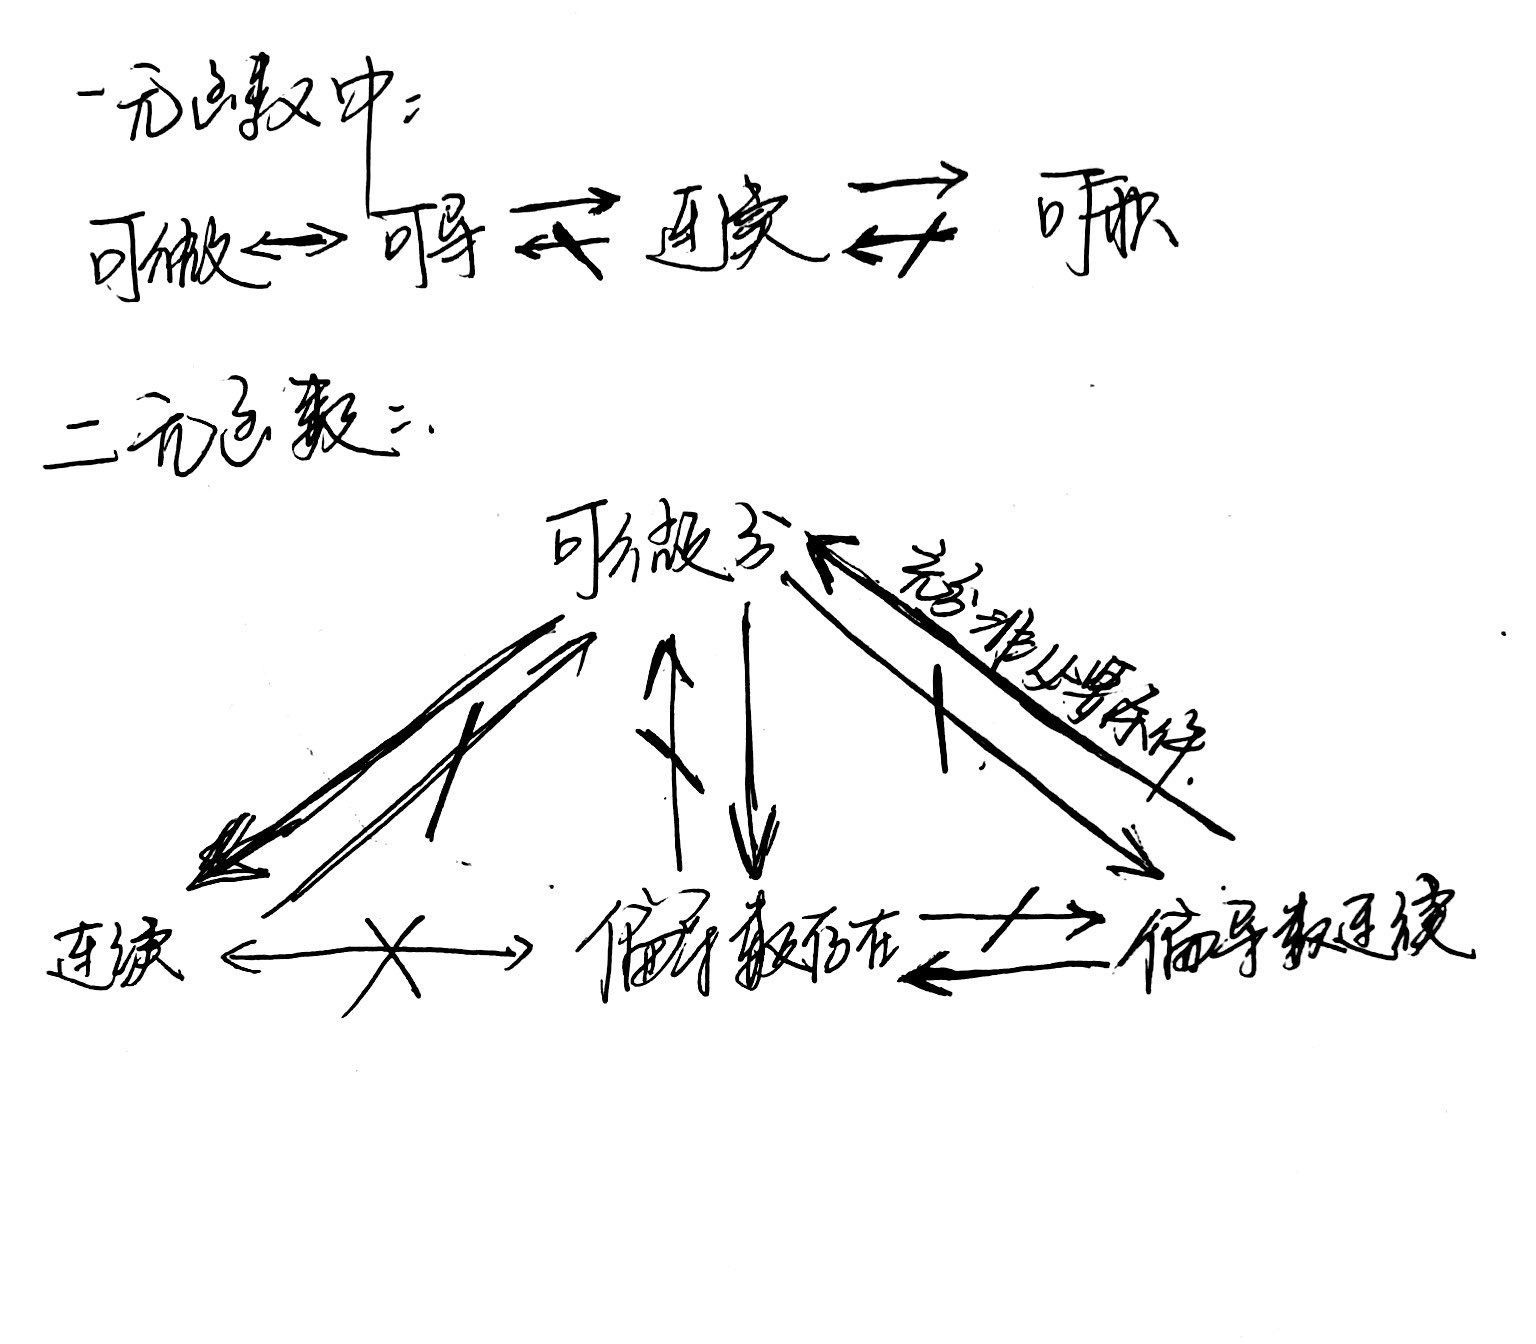 一元函数中:
可微 可导 连续 可积
二元函数:
可微分
充分非必要条件
连续 偏导数存在 偏导数连续